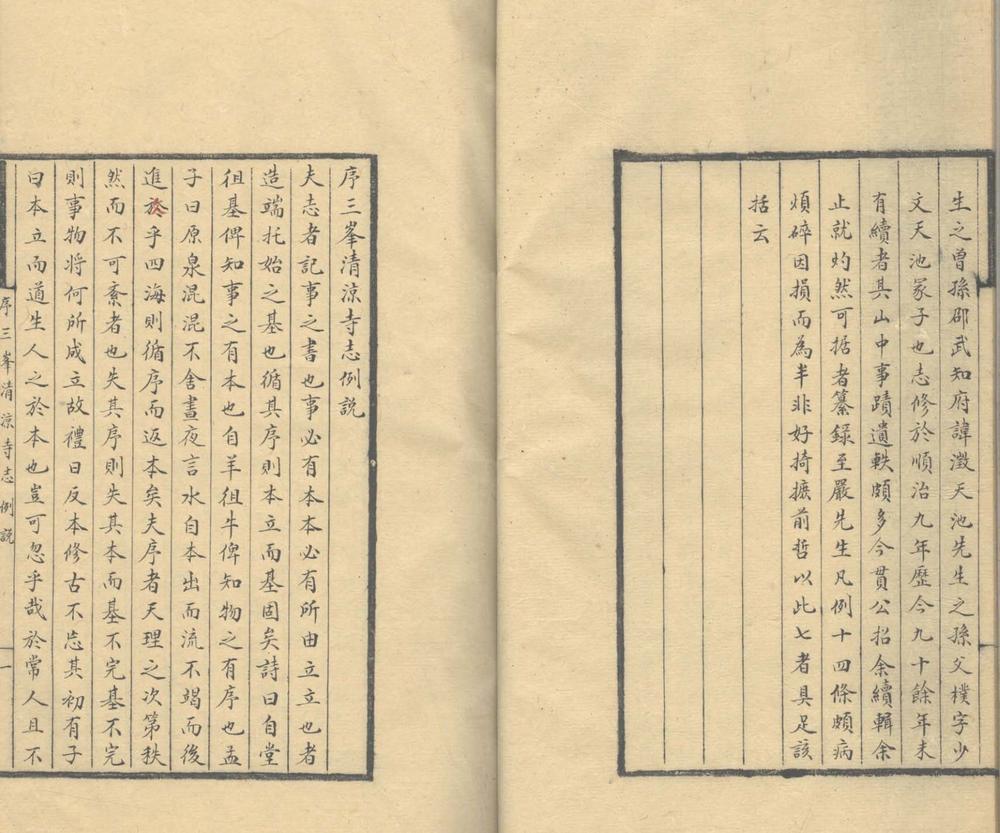 生之曾孫邵武知府諱澂天池先生之孫父樸字少
文天池冢子也志修於順治九年歷今九十餘年未
有續者其山中事蹟遺軼頗多今貫公招余續輯余
止就灼然可据者纂録至嚴先生凡例十四條頗病
煩碎因損而為半非好掎摭前哲以此七者具足該
括云
序三峯清涼寺志例説
夫志者記事之書也事必有本本必有所由立立也者
造端托始之基也循其序則本立而基固矣詩曰自堂
徂基俾知事之有本也自羊徂牛俾知物之有序也孟
子曰原泉混混不舍晝夜言水自本出而流不竭而後
進於乎四海則循序而返本矣夫序者天理之次第秩
然而不可紊者也失其序則失其本而基不完基不完
則事物将何所成立故禮曰反本修古不忘其初有子
曰本立而道生人之於本也豈可忽乎哉於常人且不
序三峯清涼寺志例說
一